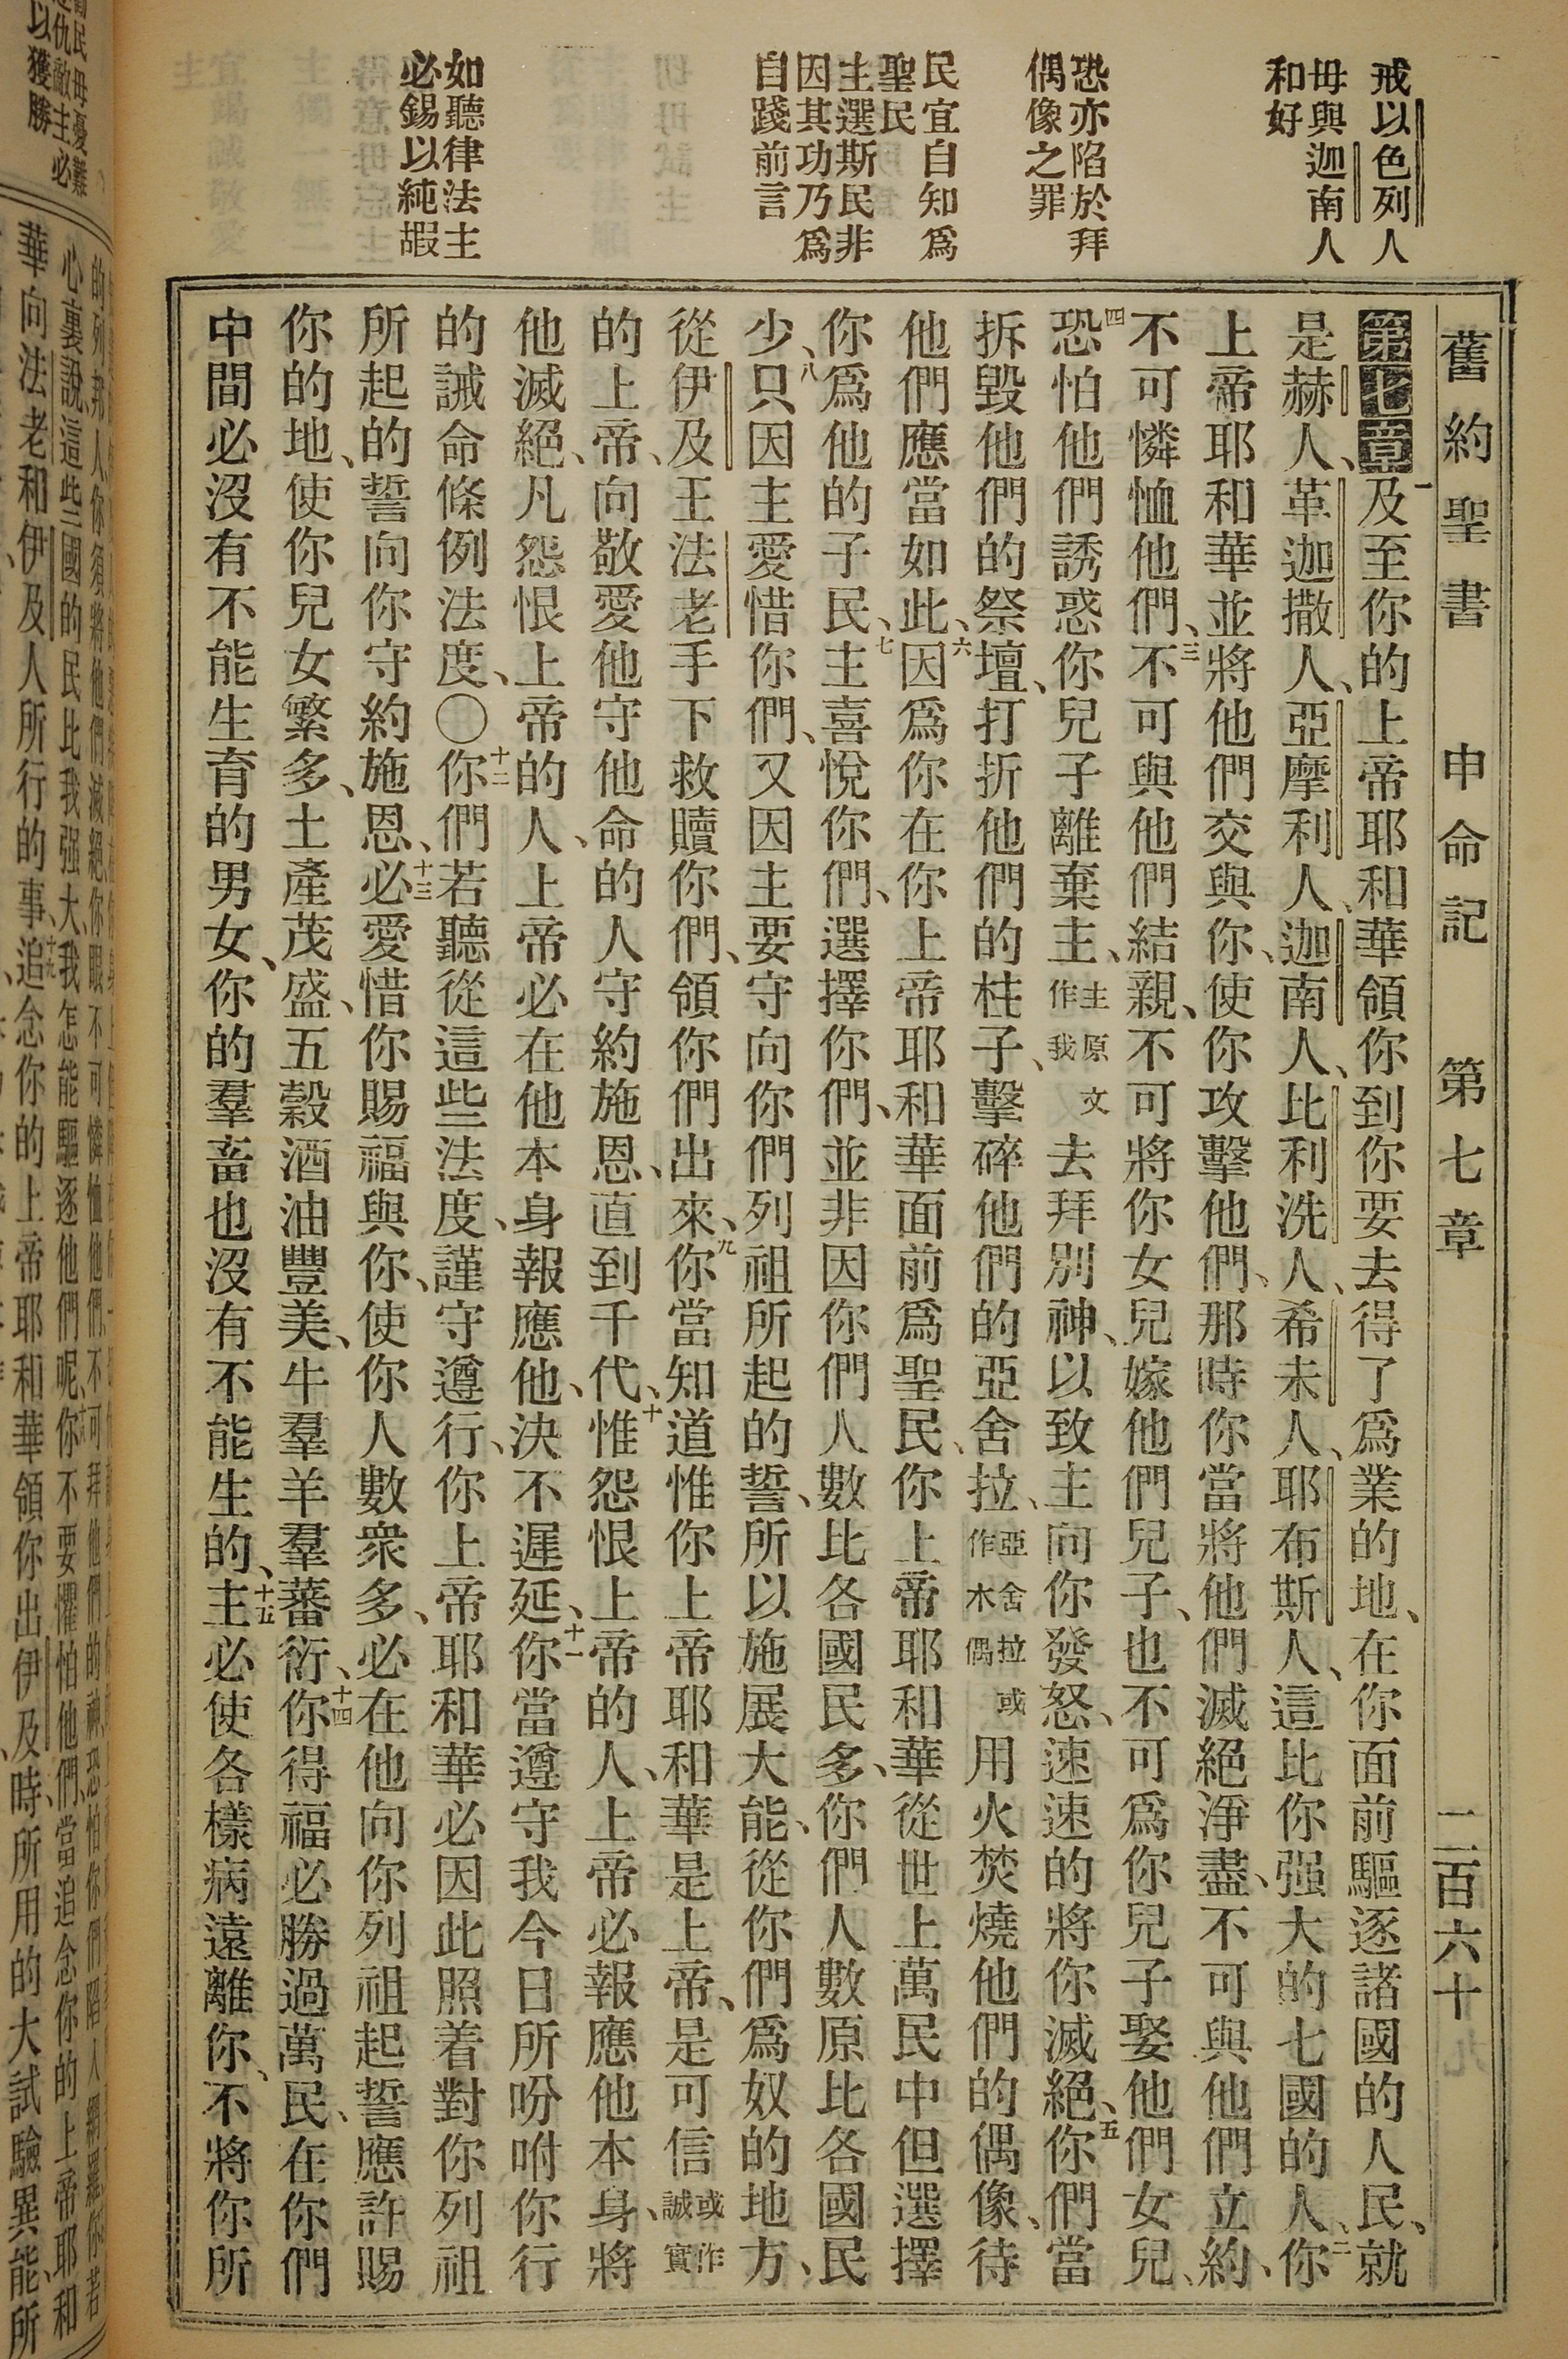 舊約聖書 申命記 第七章 二百六十九
戒以色列人
毋與迦南人
和好
恐亦陷於拜
偶像之罪
民宜自知爲
聖民
主選斯民非
因其功乃爲
自踐前言
如聽律法主
必錫以純嘏
第七章一及至你的上帝耶和華領你到你要去得了爲業的地、在你面前驅逐諸國的人民、就
是赫人、革迦撒人、亞摩利人、迦南人、比利洗人、希未人、耶布斯人、這比你强大的七國的人、二你
上帝耶和華並將他們交與你、使你攻擊他們、那時你當將他們滅絕淨盡、不可與他們立約、
不可憐恤他們、三不可與他們結親、不可將你女兒嫁他們兒子、也不可爲你兒子娶他們女兒、
四恐怕他們誘惑你兒子離棄主、主原文作我去拜別神、以致主向你發怒、速速的將你滅絕、五你們當
拆毀他們的祭壇、打折他們的柱子、擊碎他們的亞舍拉、亞舍拉或作木偶用火焚燒他們的偶像、待
他們應當如此、六因爲你在你上帝耶和華面前爲聖民、你上帝耶和華從世上萬民中但選擇
你爲他的子民、七主喜悅你們、選擇你們、並非因你們人數比各國民多、你們人數原比各國民
少、八只因主愛惜你們、又因主要守向你們列祖所起的誓、所以施展大能、從你們爲奴的地方、
從伊及王法老手下救贖你們、領你們出來、九你當知道惟你上帝耶和華是上帝、是可信或作誠實
的上帝、向敬愛他守他命的人守約施恩、直到千代、十惟怨恨上帝的人、上帝必報應他本身、將
他滅絕、凡怨恨上帝的人、上帝必在他本身報應他、決不遲延、十一你當遵守我今日所吩咐你行
的誡命條例法度、〇十二你們若聽從這些法度、謹守遵行、你上帝耶和華必因此照着對你列祖
所起的誓向你守約施恩、十三必愛惜你賜福與你、使你人數衆多、必在他向你列祖起誓應許賜
你的地、使你兒女繁多、土產茂盛、五穀酒油豐美、牛羣羊羣蕃衍、十四你得福必勝過萬民、在你們
中間必沒有不能生育的男女、你的羣畜也沒有不能生的、十五主必使各樣病遠離你、不將你所
以獲勝
心裏說、這些國的民比我强大、我怎能驅逐他們呢、你不要懼怕他們、當追念你的上帝耶和
華向法老和伊及人所行的事、十九追念你的上帝耶和華領你出伊及時、所用的大試驗異能、所